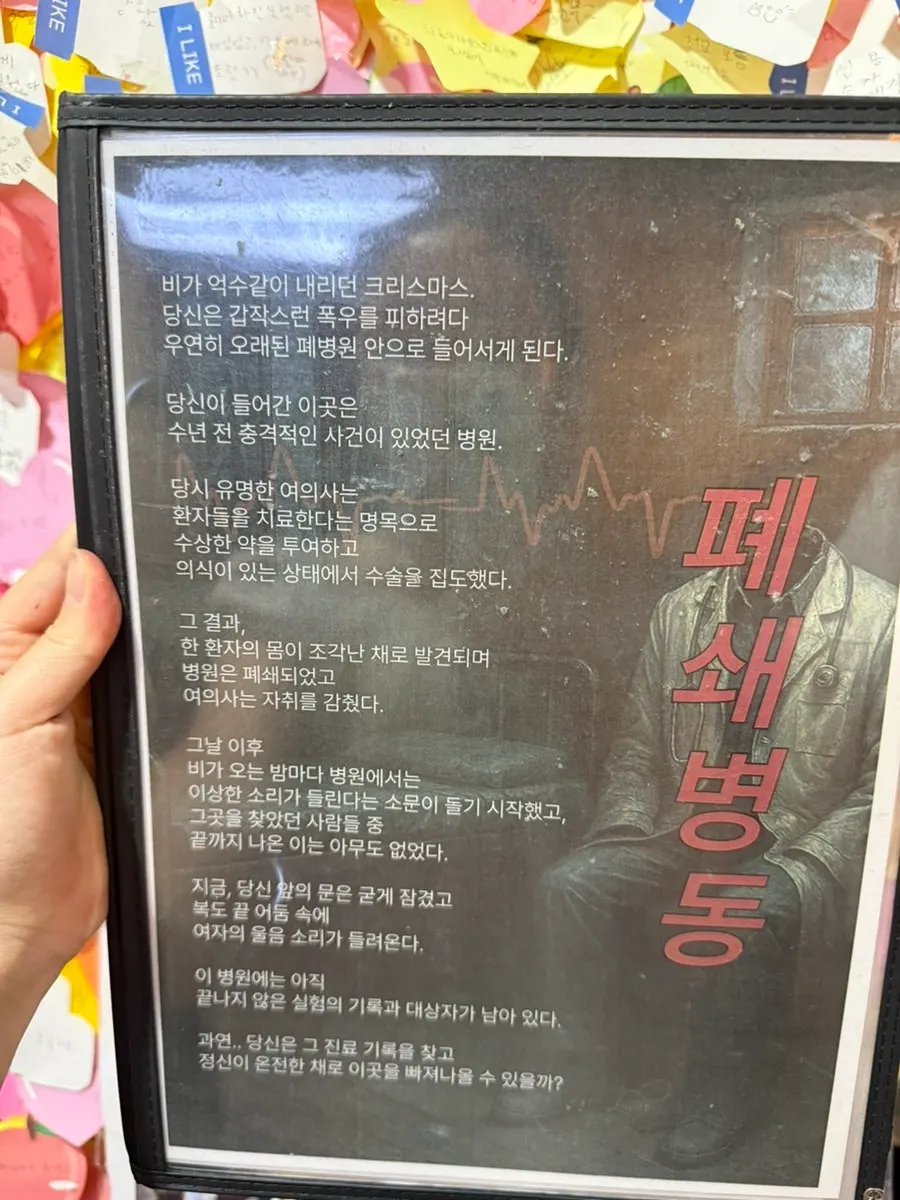 I LIKE
I LIKE
비가 억수같이 내리던 크리스마스.
당신은 갑작스런 폭우를 피하려다
우연히 오래된 폐병원 안으로 들어서게 된다.
당신이 들어간 이곳은
수년 전 충격적인 사건이 있었던 병원.
당시 유명한 여의사는
환자들을 치료한다는 명목으로
수상한 약을 투여하고
의식이 있는 상태에서 수술을 집도했다.
그 결과,
한 환자의 몸이 조각난 채로 발견되며
병원은 폐쇄되었고
여의사는 자취를 감췄다.
그날 이후
비가 오는 밤마다 병원에서는
이상한 소리가 들린다는 소문이 돌기 시작했고,
그곳을 찾았던 사람들 중
끝까지 나온 이는 아무도 없었다.
지금, 당신 앞의 문은 굳게 잠겼고
복도 끝 어둠 속에
여자의 울음 소리가 들려온다.
이 병원에는 아직
끝나지 않은 실험의 기록과 대상자가 남아 있다.
과연.. 당신은 그 진료 기록을 찾고
정신이 온전한 채로 이곳을 빠져나올 수 있을까?
폐쇄병동